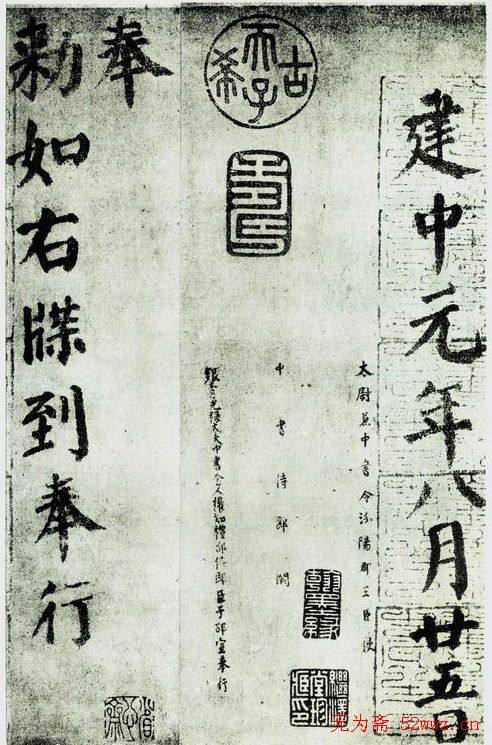 建中元年八月廿五日
太尉兼中書令汾陽郡王臣使
中書侍郎闕
銀青光祿大夫中書舍人權知禮部侍郎臣于邵宣奉行
古希天子
壽
奉
勅如右牒到奉行
无为斋·52wwz.cn